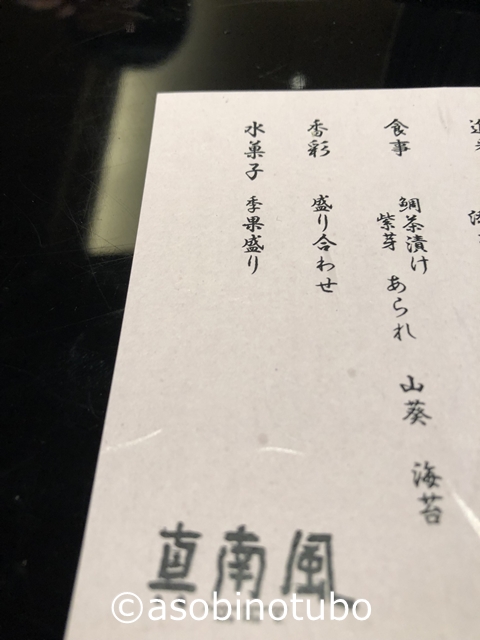 食事 鯛茶漬け
紫芽 あられ 山葵 海苔
香彩 盛り合わせ
水菓子 季果盛り
真南風
©asobinotubo